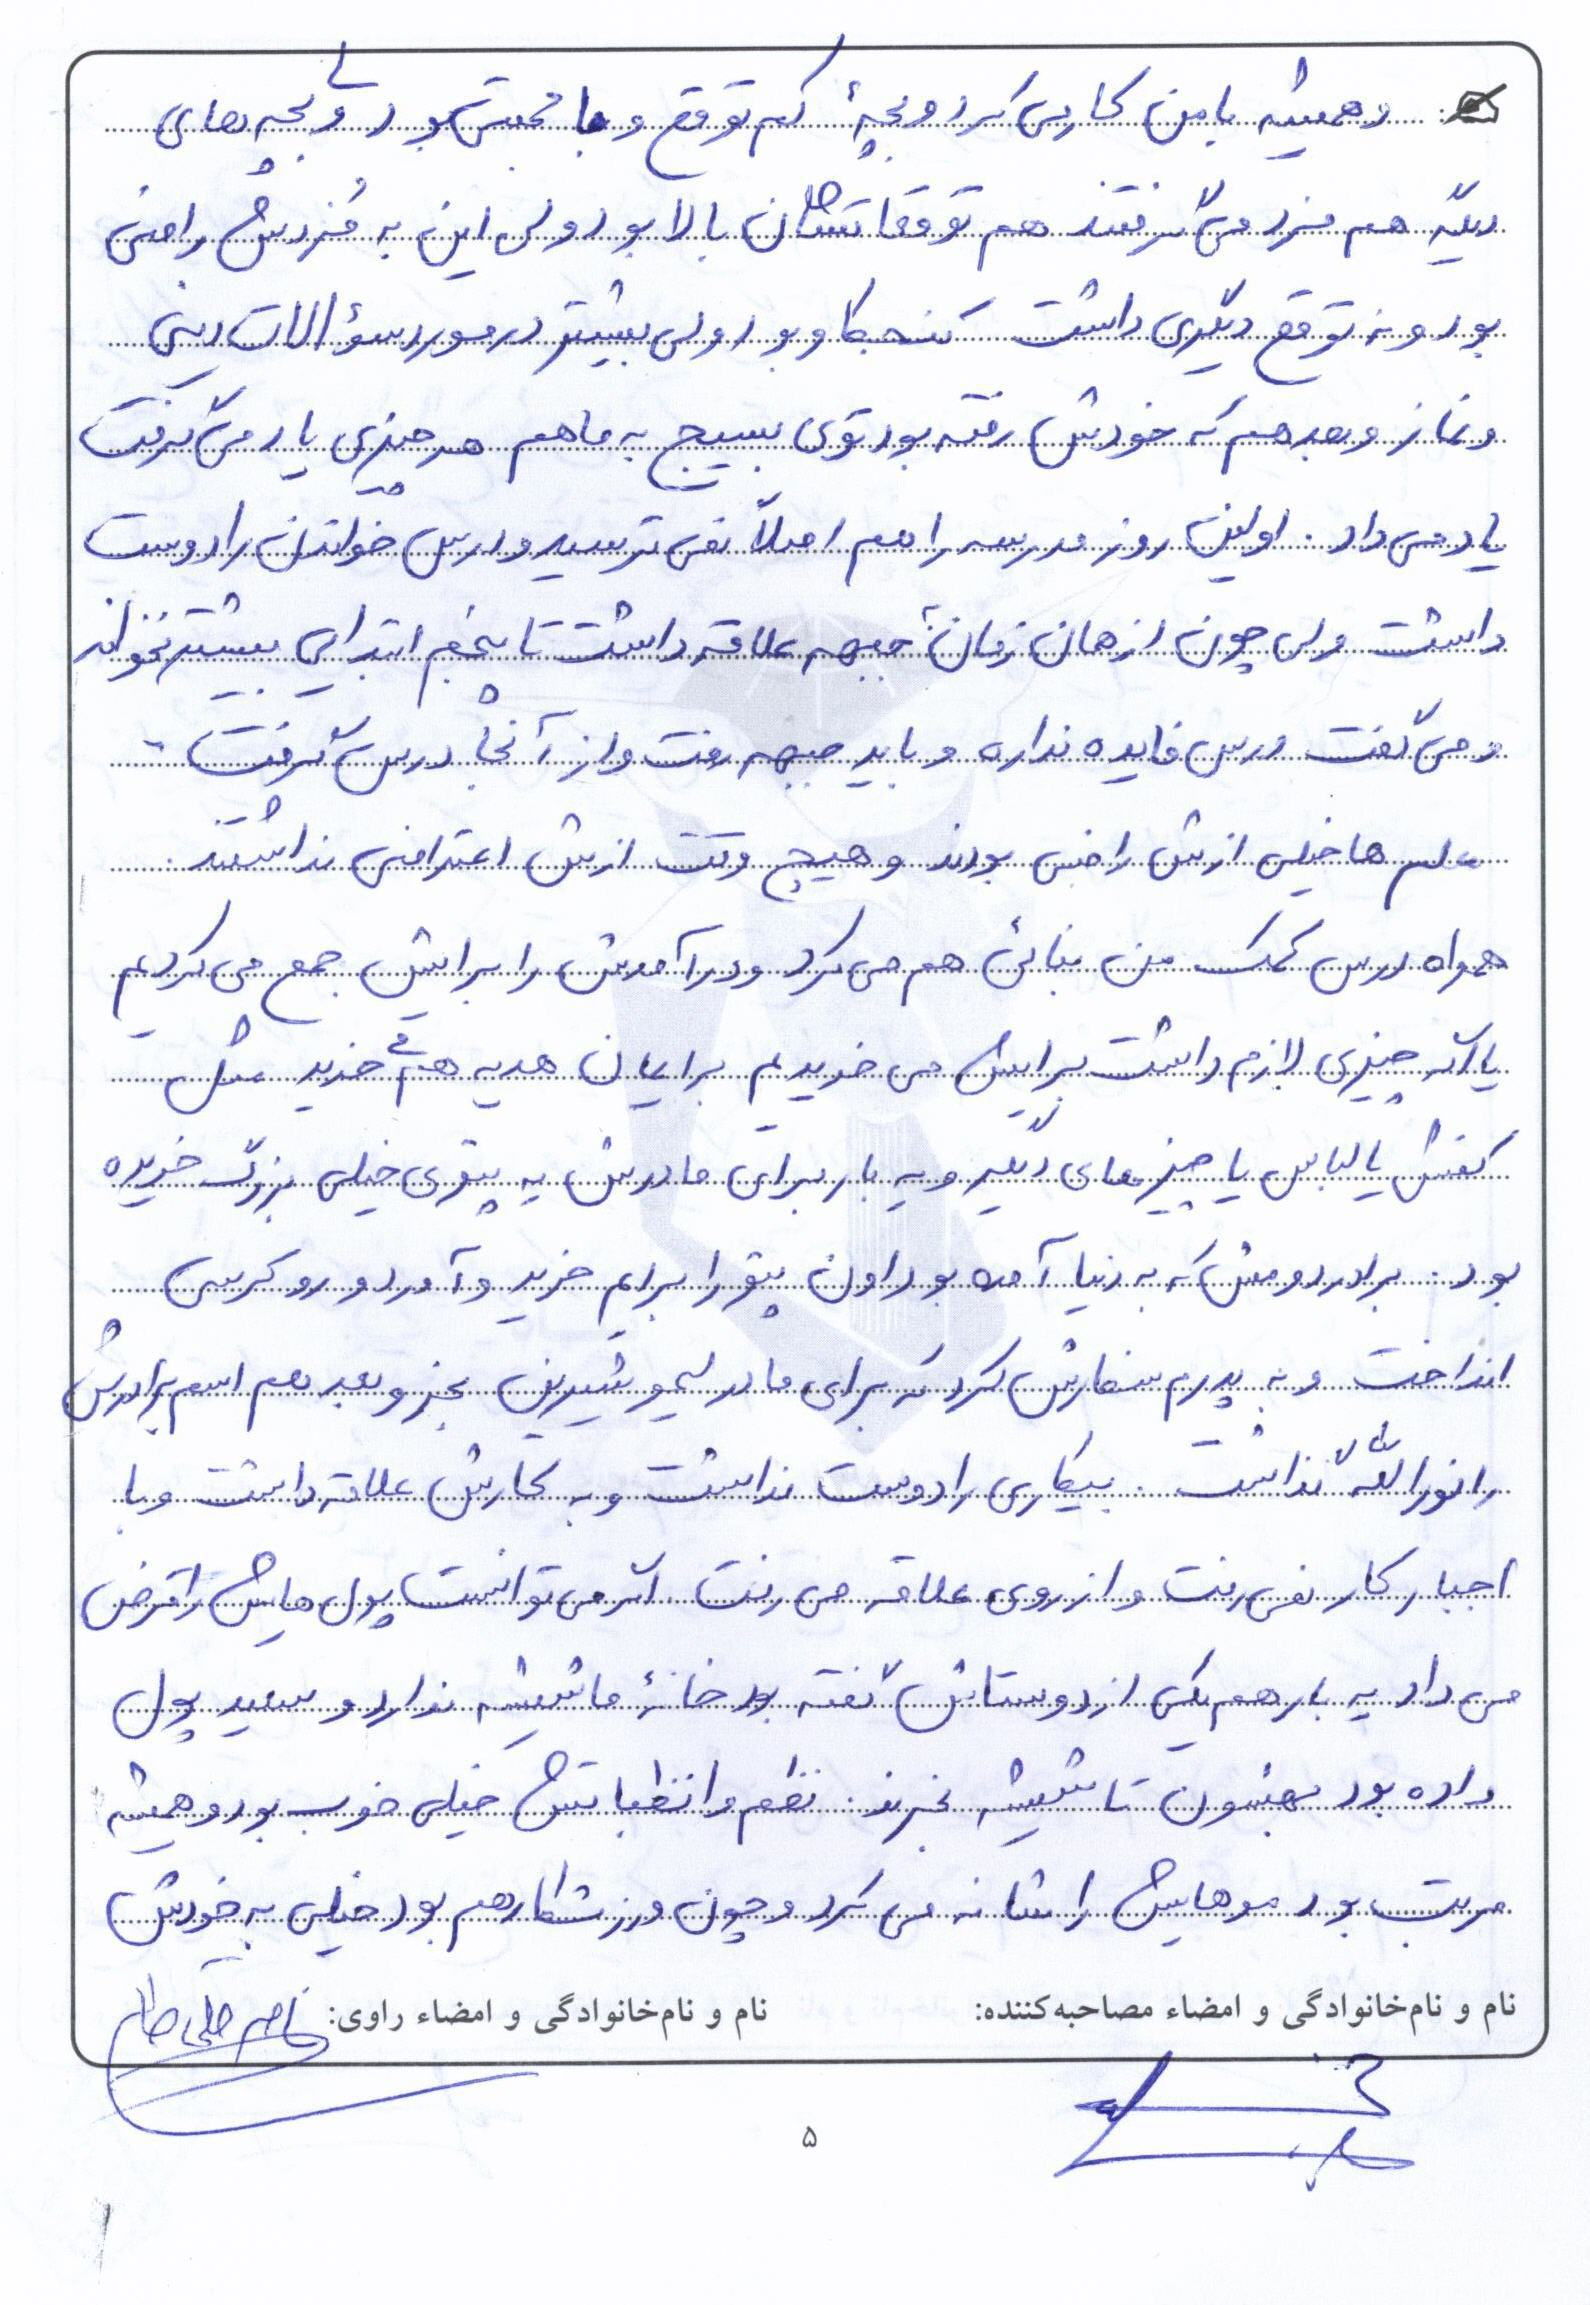 و همیشه با من کار می کرد و بچهٔ کم توقع و با محبتی بود ولی بچه های
دیگه هم مزد می گرفتند هم توقعاتشان بالا بود ولی این به مُزدش راضی
بود و نه توقع دیگری داشت کنجکاو بود ولی بیشتر در مورد سؤالات دینی
و نماز و بعد هم که خودش رفته بود توی بسیج به ما هم هر چیزی یاد می گرفت
یاد می داد. اولین روز مدرسه را هم اصلاً نمی ترسید و درس خواندن را دوست
داشت ولی چون از همان زمان جبهه علاقه داشت تا پنجم ابتدایی بیشتر نخواند
و می گفت درس فایده نداره و باید جبهه رفت و از آنجا درس گرفت.
معلم ها خیلی ازش راضی بودند و هیچ وقت ازش اعتراضی نداشتند.
همراه درس کمک من بنائی هم می کرد و درآمدش را برایش جمع می کردیم
یا اگه چیزی لازم داشت برایش می خریدیم برایمان هدیه هم می خرید مثل
کفش یا لباس یا چیزهای دیگر و یه بار برای مادرش یه پتوی خیلی بزرگ خریده
بود. برادر دومش که به دنیا آمده بود اون پتو را برایم خرید و آورد و رو کرسی
انداخت و به پدرم سفارش کرد که برای مادر لیمو شیرین بخر و بعد هم اسم برادرش
را نورالله گذاشت. بیکاری را دوست نداشت و به کارش علاقه داشت و با
اجبار کار نمی رفت و از روی علاقه می رفت. اگر می توانست پول هایش را قرض
می داد یه بار هم یکی از دوستاش گفته بود خانهٔ ما شیشه ندارد و سعید پول
داده بود بهشون تا شیشه بخرند. نظم و انظباتش خیلی خوب بود و همیشه
مرتب بود موهایش را شانه می کرد و چون ورزشکار هم بود خیلی به خودش
نام و نام‌خانوادگی و امضاء مصاحبه‌کننده:
نام و نام‌خانوادگی و امضاء راوی:
۵